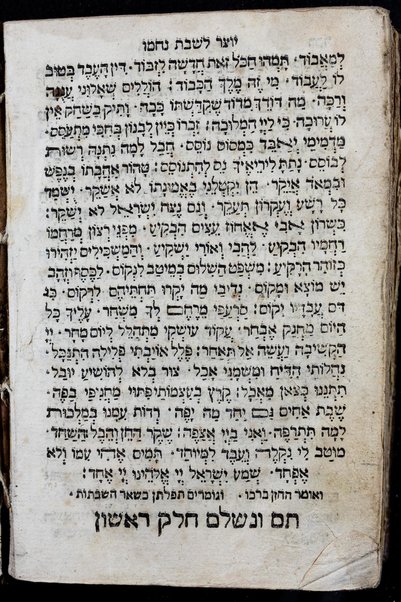 יוצר לשבת נחמו
למאבוד. תמהו הכל זאת חדשה לזבוד. דין העבד בטוב
לו לעבוד. מי זה מלך הכבוד: הוללים שאלוני ענגה
ורכה. מה דודך מדוד שקדשתו ככה. ותיק בשחק אין
לו ערוכה. כי לייי המלוכה: זכרו כיין לבנון בחכי מתעסס.
מדמימי יאבד כמסוס נוסס. חבל למה נתנה רשות
לבוסס. נתת ליריאיך נס להתנוסס: טהור אהבתו בנפש
ובמאוד איקר. הן יקטלני באמונתו לא אשקר. ישמד
כל רשע ועקרון תעקר. וגם נצח ישראל לא ישקר:
כשרון אבי אאחוז עצים הבקיע. מפני רצון מרחמו
רחמיו הבקיע. להבי ואורי ישקיע. והמשכילים יזהירו
כזוהר הרקיע: משפט השלום במיטב לנקום. לכסף וזהב
יש מוצא ומקום. נדיבו מה יקרו תחתיהם לרקום. כי
דם עבדיו יקום: סרעפי מרחם לך משחר. עליך כל
היום מחנק אבחר. עקוד עושקו מתהלל ליום מחר. ייי
הקשיבה ועשה אל תאחר: פלל אויבתי פלילה התנכל.
נחלותי הדיח ומשמני אכל. צור בלא להושיע יובל.
תתננו כצאן מאכל: קרץ בעצמותי פתוי מחניפי בפה.
שבת אחים גם יחד מה יפה. רדות עמנו במלכות
למה תתרפה. ואני בייי אצפה: שקר החן והבל השחד.
מוטב לי נקלה ועבד למיוחד. תמים אהי עמו ולא
אפחד. שמע ישראל ייי אלהינו ייי אחד:
ואומר החזן ברכו. וגומרים תפלתן כשאר השבתות.
תם ונשלם חלק ראשון